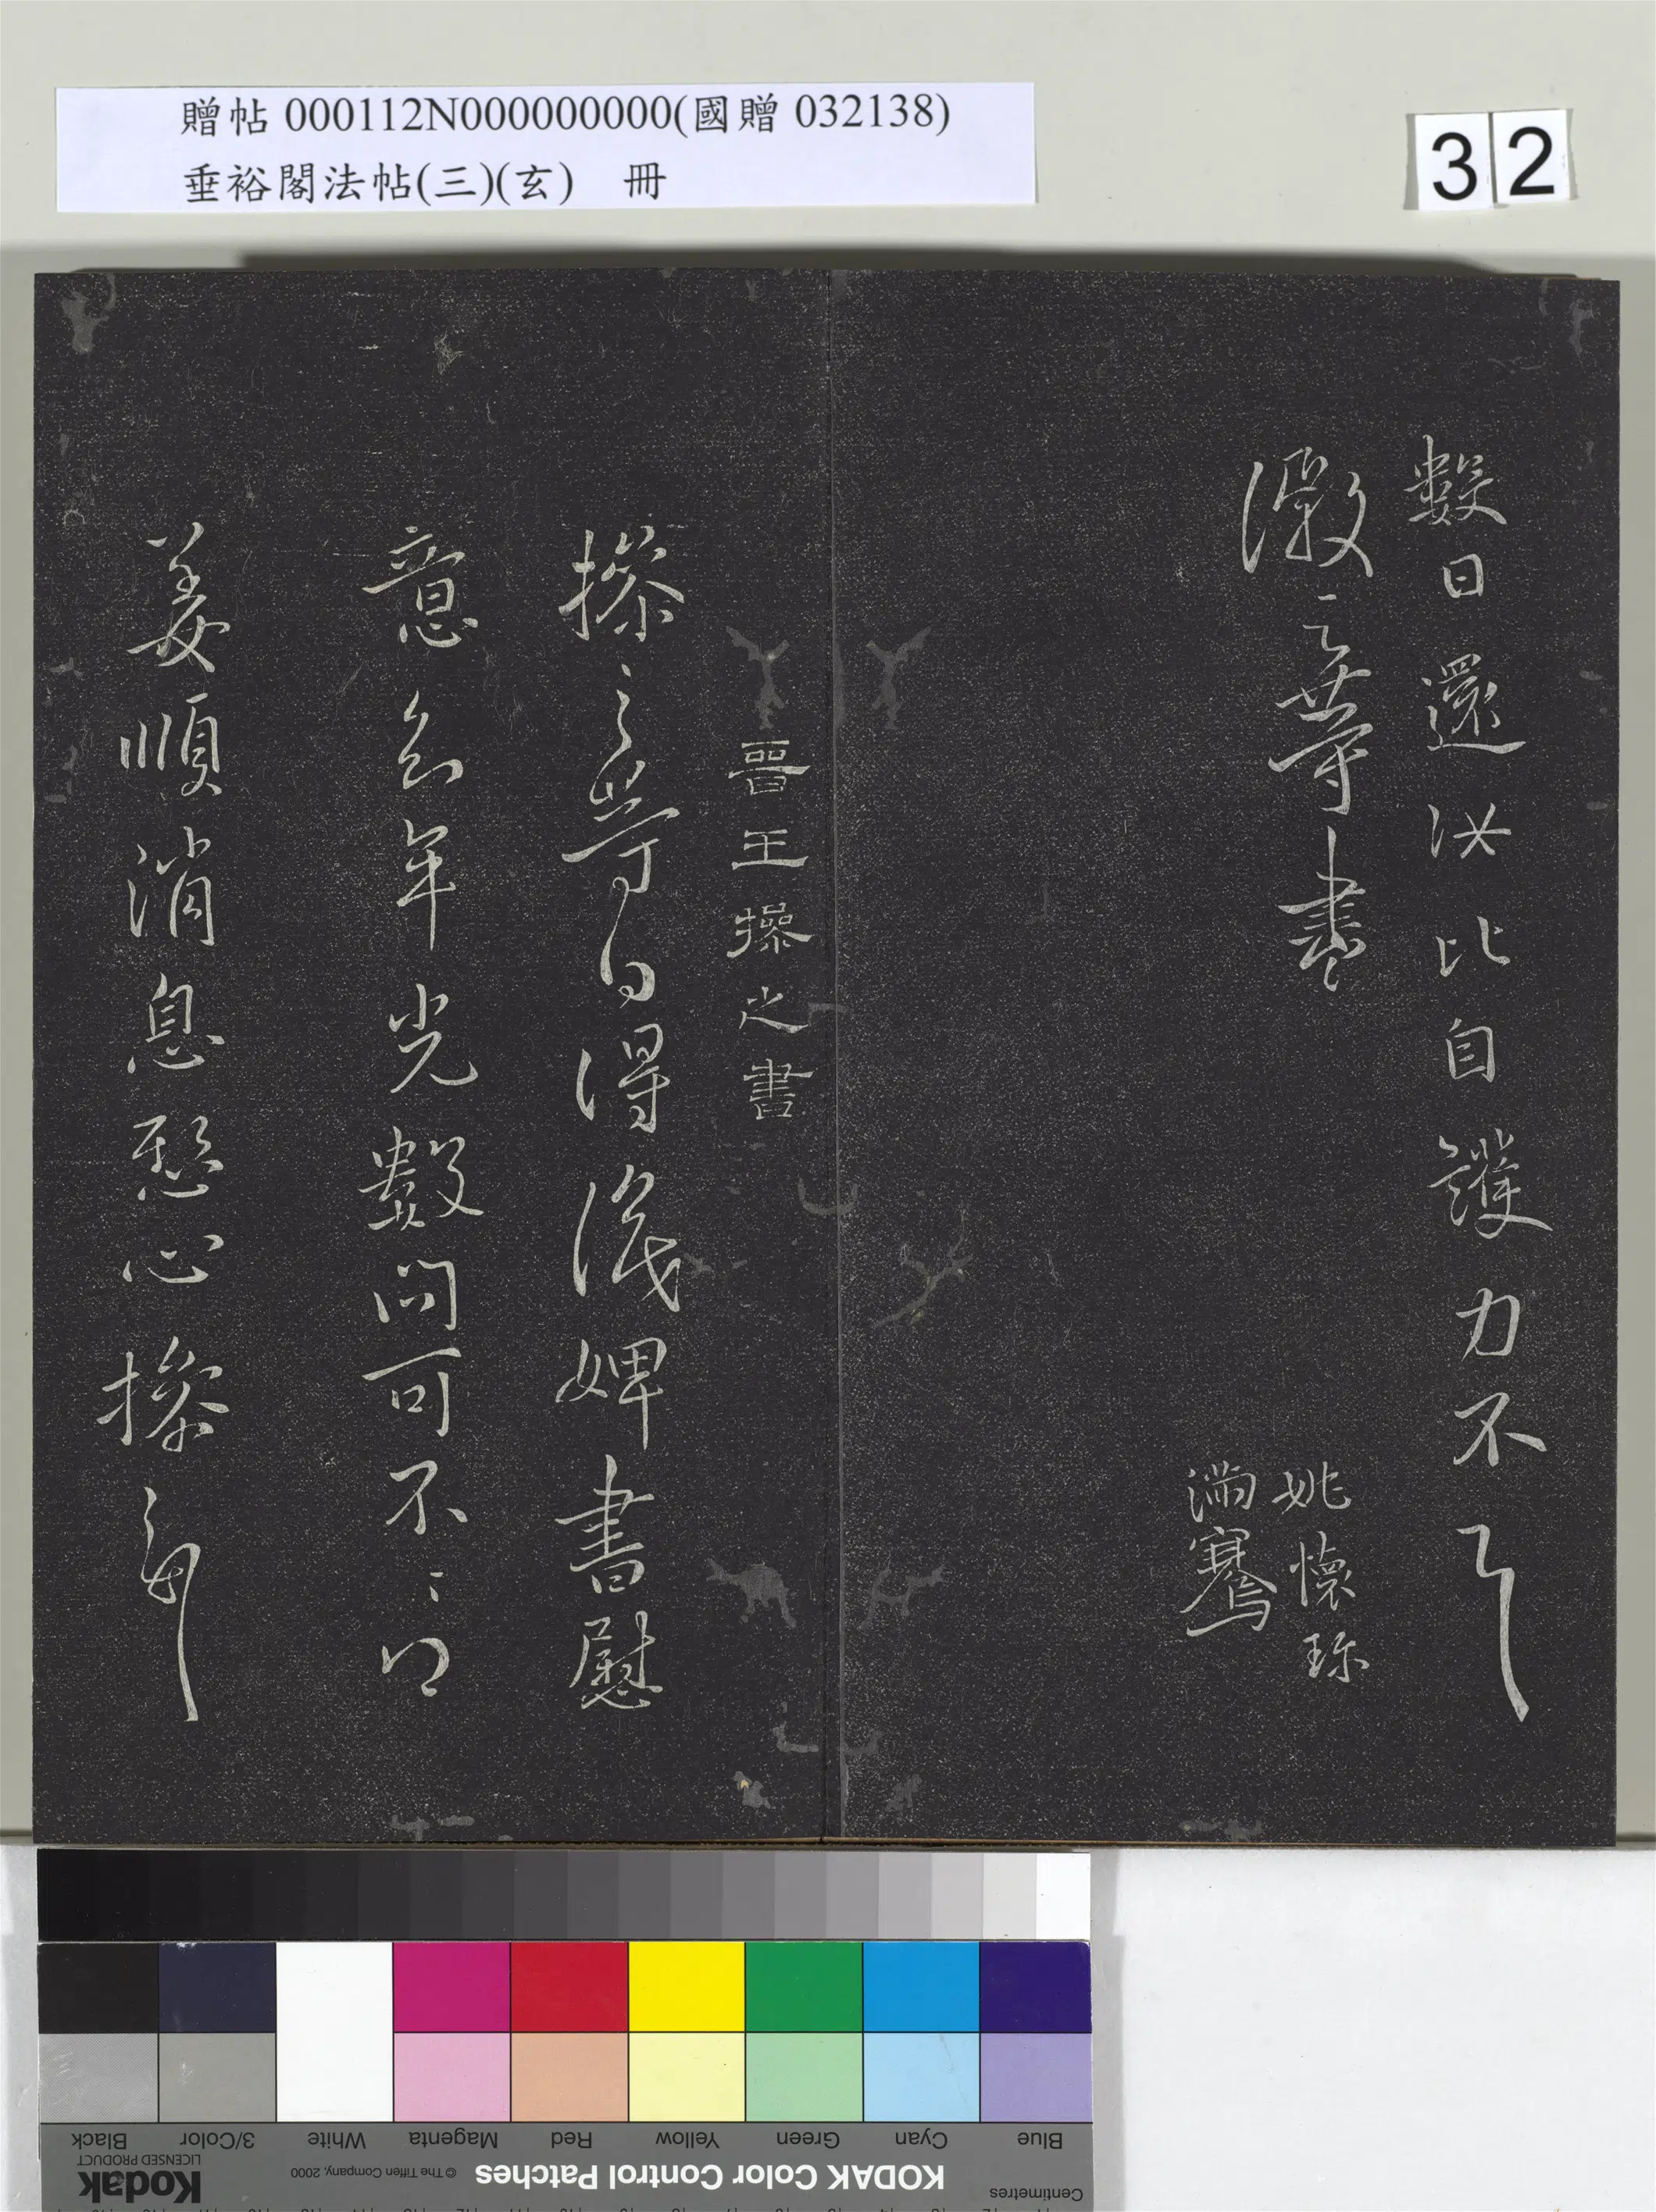 贈帖 000112N000000000(國贈 032138)
垂裕閣法帖(三)(玄) 冊
32
數日還汝比自護力不具
徽之等書
姚懷珍
滿騫
晉王操之書
操之等白得識婢書慰
意念年光數問可不
姜順消息愁心操之報
Centimetres
Blue Cyan Green Yellow Red Magenta White 3/Color Black
KODAK Color Control Patches © The Tiffen Company, 2000 Kodak LICENSED PRODUCT